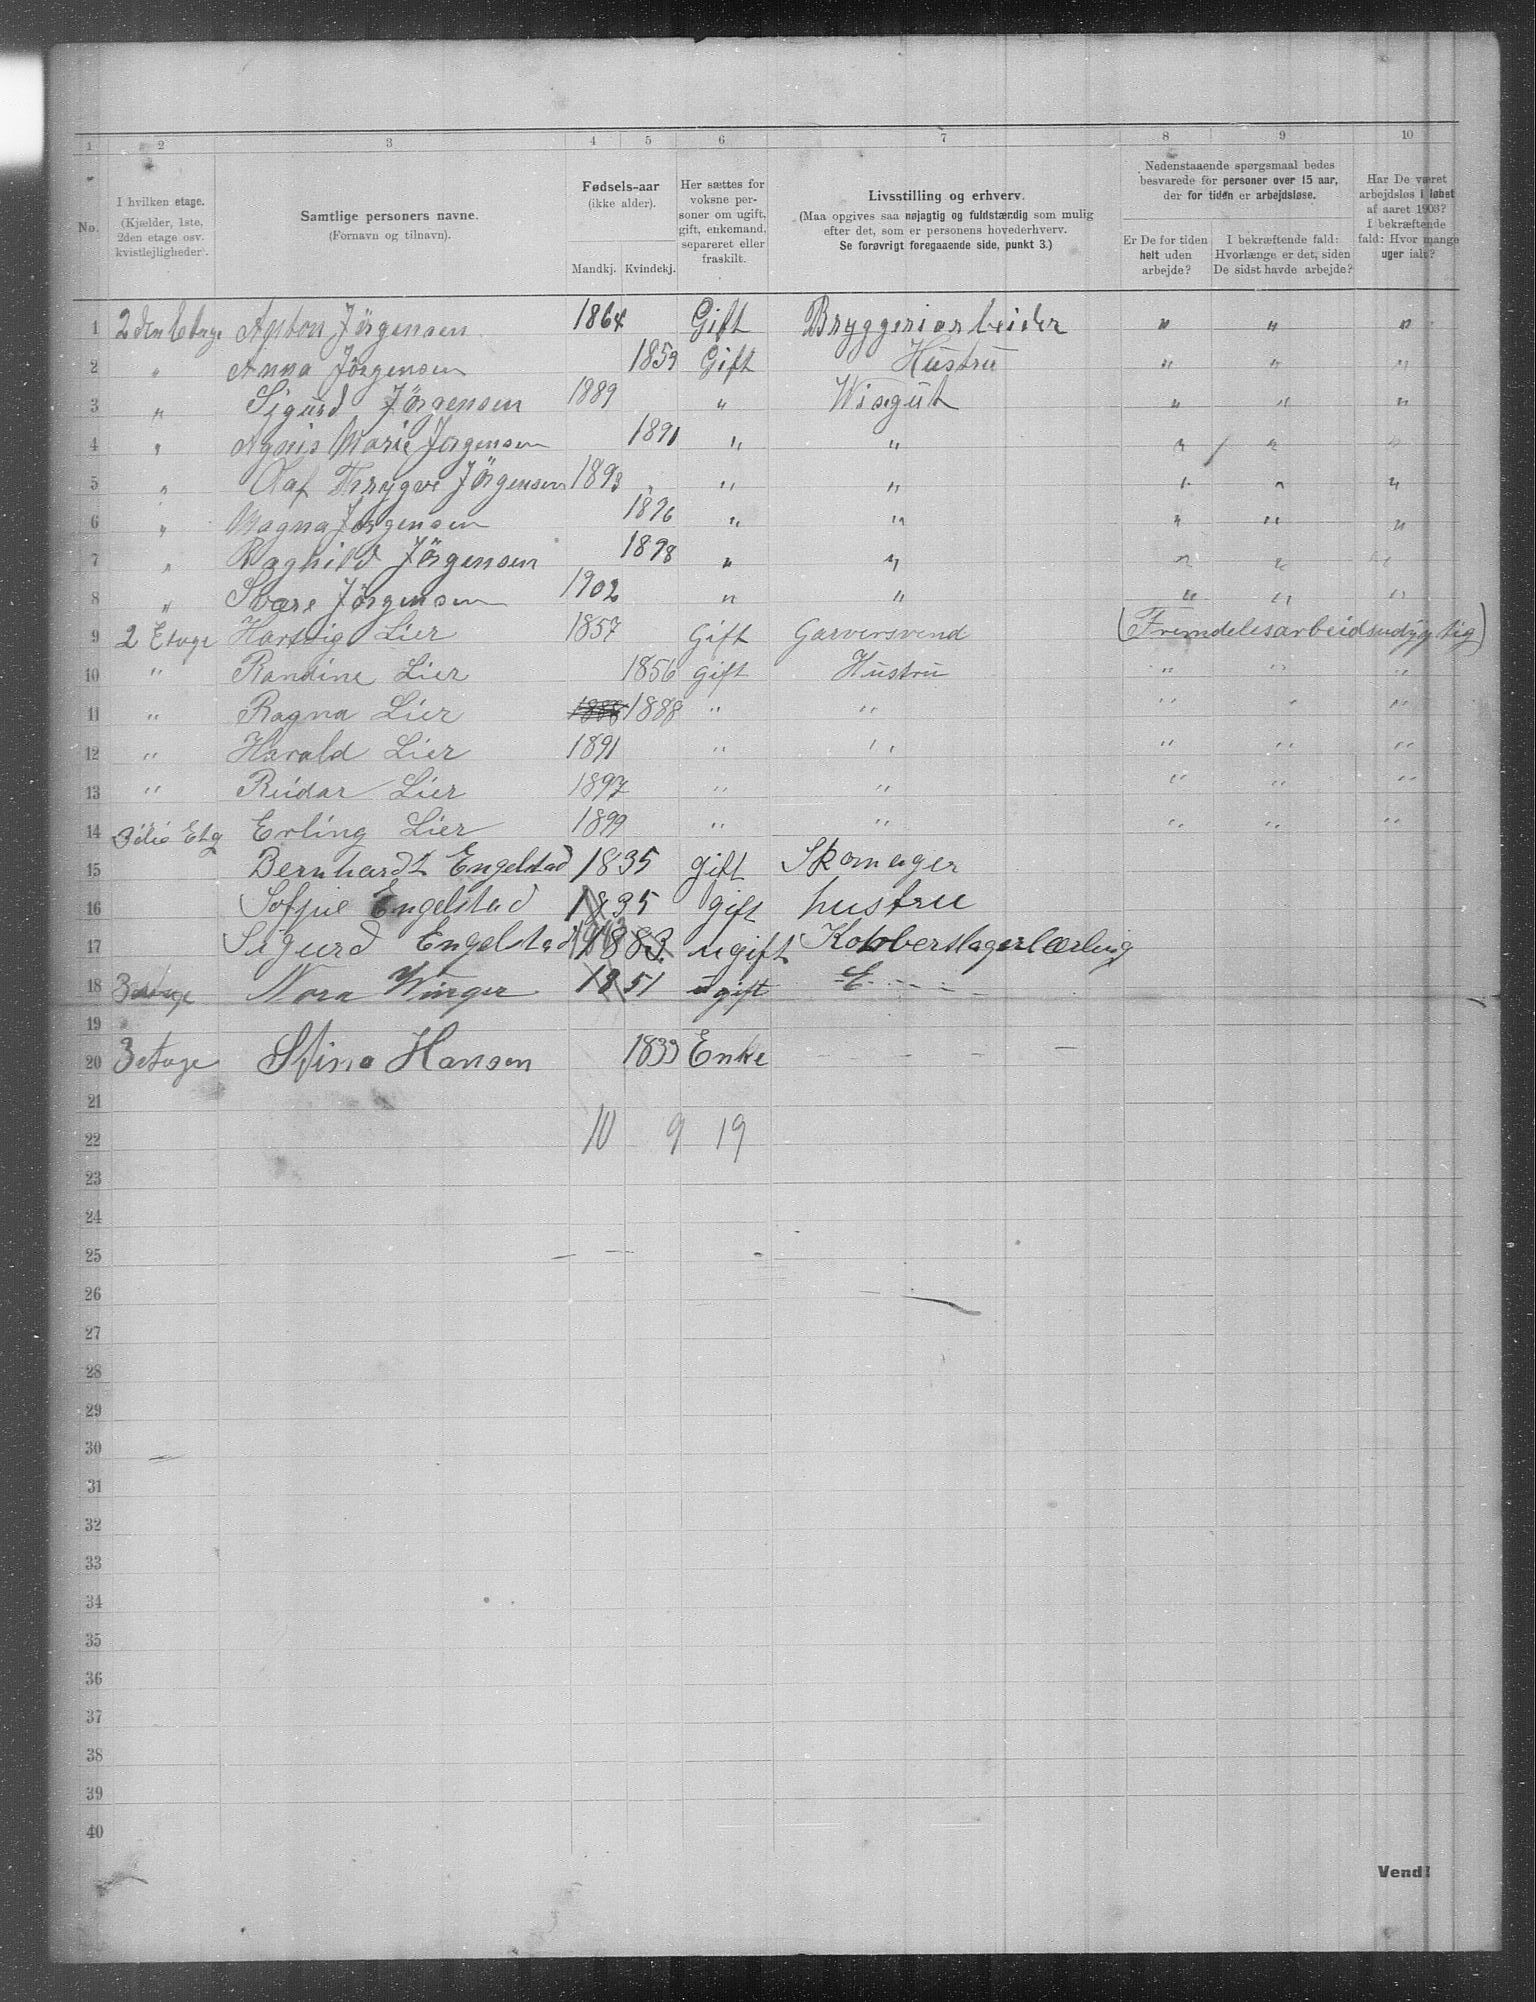 1 2 3 4 5 6 7 8 9 10
No.
I hvilken etage.
(Kjælder, 1ste,
2den etage osv.
kvistlejligheder).
Samtlige personers navne.
(Fornavn og tilnavn).
Fødsels-aar
(ikke alder).
Mandkj. Kvindekj.
Her sættes for
voksne per-
soner om ugift,
gift, enkemand,
separeret eller
fraskilt.
Livsstilling og erhverv.
(Maa opgives saa nøjagtig og fuldstændig som mulig
efter det, som er personens hovederhverv.
Se forøvrigt foregaaende side, punkt 3.)
Nedenstaaende spørgsmaal bedes
besvarede for personer over 15 aar,
der for tiden er arbejdsløse.
Er De for tiden
helt uden
arbejde?
I bekræftende fald:
Hvorlænge er det, siden
De sidst havde arbejde?
Har De været
arbejdsløs i løbet
af aaret 1903?
I bekræftende
fald: Hvor mange
uger ialt?
1 2den Etage Anton Jörgensen 1864 Gift Bryggeriarbeider " " "
2 " Anna Jörgensen 1859 Gift Hustru " " "
3 " Sigurd Jörgensen 1889 " Visegut " " "
4 " Agnis Marie Jørgensen 1891 " " " " "
5 " Olaf Thrygve Jörgensen 1893 " " " " " "
6 " Magna Jørgensen 1896 " " " " "
7 " Raghild Jörgensen 1898 " " " " "
8 " Svare Jörgensen 1902 " " " " "
9 2 Etage Hartvig Lier 1857 Gift Garversvend (Fremdelesarbeidsudygtig)
10 " Randine Lier 1856 gift Hustru " " "
11 " Ragna Lier 1888 1888 " " " " "
12 " Harald Lier 1891 " " " " "
13 " Reidar Lier 1897 " " " " "
14 Erling Lier 1899 " " " " "
15 Bernhardt Engelstad 1835 gift Skomager
16 Sofjie Engelstad 1835 gift hustru
17 Sigurd Engelstad 1883 ugift Kobberslagerlærling
18 3 etage Nora Winger 1851 ugift
19
20 3 etage Stina Hansen 1833 Enke — — — —
21
22 10 9 19
23
24
25
26
27
28
29
30
31
32
33
34
35
36
37
38
39
40
Vend!